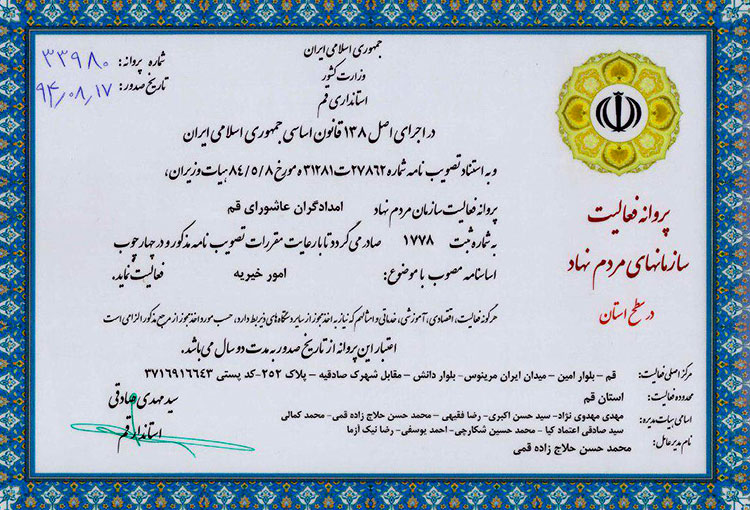 جمهوری اسلامی ایران
وزارت کشور
استانداری قم
شماره پروانه: ۳۳۹۸۰
تاریخ صدور: ۹۴/۰۸/۱۷
در اجرای اصل ۱۳۸ قانون اساسی جمهوری اسلامی ایران
و به استناد تصویب نامه شماره ۲۷۸۶۲ت۳۱۲۸۱ه مورخ ۸۴/۵/۸ هیات وزیران،
پروانه فعالیت سازمان مردم نهاد امدادگران عاشورای قم
به شماره ثبت ۱۷۷۸ صادر می گردد تا با رعایت مقررات تصویب نامه مذکور و در چهارچوب
اساسنامه مصوب با موضوع: امور خیریه فعالیت نماید.
هرگونه فعالیت، اقتصادی، آموزشی، خدماتی و امثالهم که نیاز به اخذ مجوز از سایر دستگاه های ذیربط دارد، حسب مورد اخذ مجوز از مرجع مذکور الزامی است
اعتبار این پروانه از تاریخ صدور به مدت دو سال می باشد.
پروانه فعالیت
سازمانهای مردم نهاد
در سطح استان
مرکز اصلی فعالیت: قم – بلوار امین – میدان ایران مرینوس– بلوار دانش – مقابل شهرک صادقیه – پلاک ۲۵۲-کد پستی ۳۷۱۶۹۱۶۶۴۳
محدوده فعالیت: استان قم
اسامی هیات مدیره: مهدی مهدوی نژاد- سید حسن اکبری- رضا فقیهی - محمد حسن حلاج زاده قمی- محمد کمالی
سید صادقی اعتماد کیا – محمد حسین شکارچی- احمد یوسفی- رضا نیک آزما
نام مدیر عامل: محمد حسن حلاج زاده قمی
سید مهدی صادقی
استاندار قم